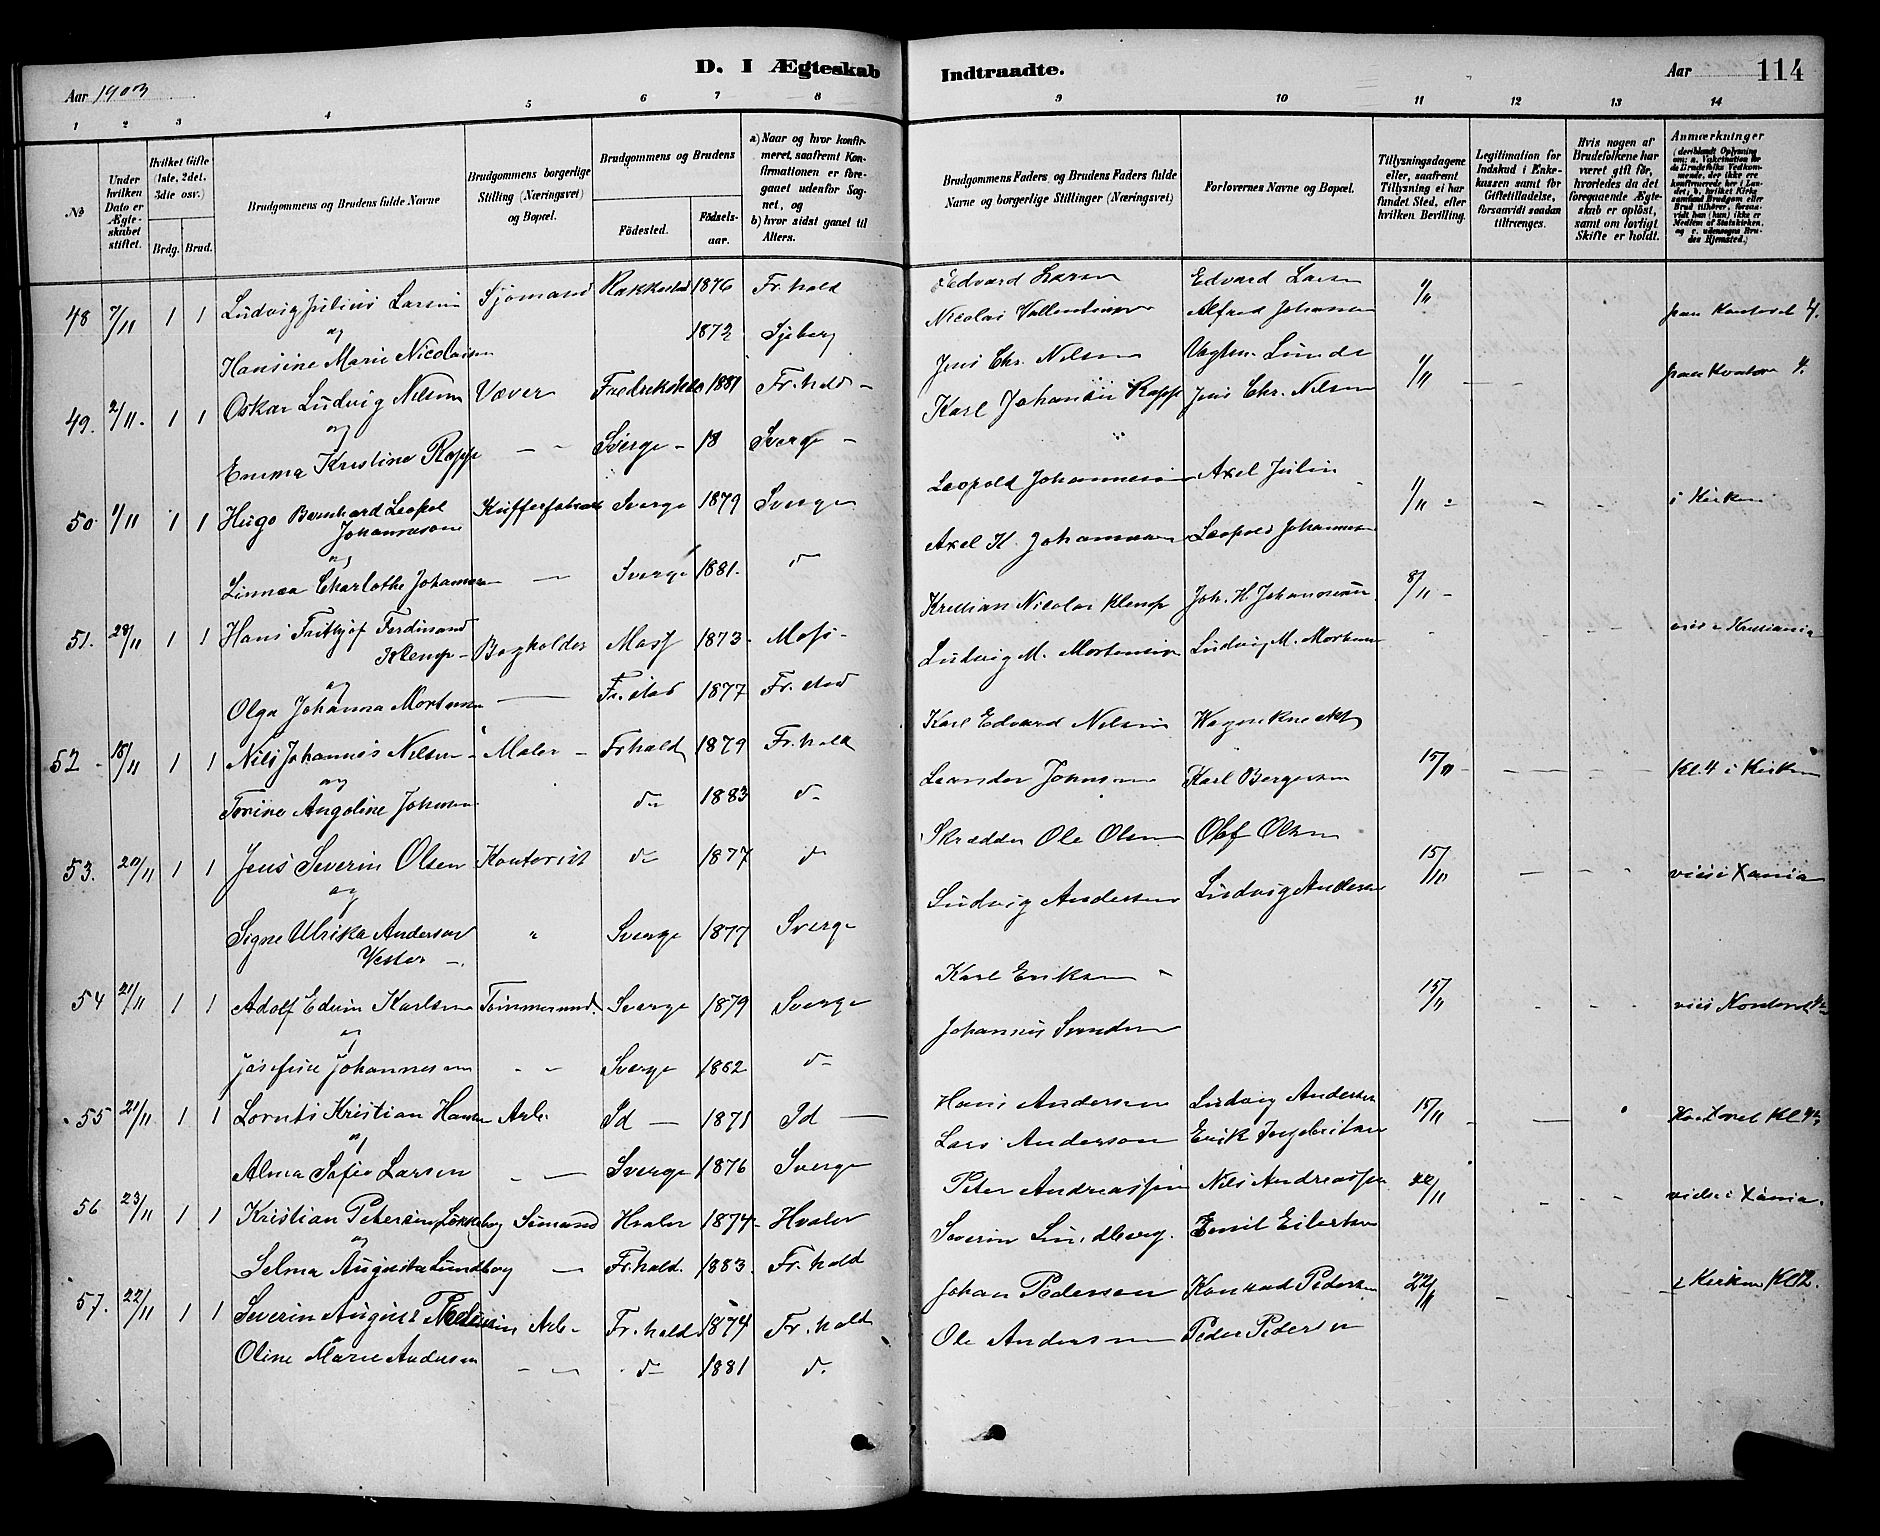 D. I Ægteskab Indtraadte.
Aar 1903
Aar 114
1 2 3 4 5 6 7 8 9 10 11 12 13 14
No
Under hvilken Dato er Ægteskabet stiftet.
Hvilket Gifte (1ste, 2det, 3die osv.)
Brdg. Brud.
Brudgommens og Brudens fulde Navne
Brudgommens borgerlige Stilling (Næringsvei) og Bopæl.
Brudgommens og Brudens
Fødested. Fødselsaar.
a) Naar og hvor konfirmeret, saafremt Konfirmationen er foregaaet udenfor Sognet, og
b) hvor sidst gaaet til Alters.
Brudgommens Faders og Brudens Faders fulde Navne og borgerlige Stillinger (Næringsvei)
Forlovernes Navne og Bopæl.
Tillysningsdagene eller, saafremt Tillysning ei har fundet Sted, efter hvilken Bevilling.
Legitimation for Indskud i Enkekassen samt for Giftetilladelse, forsaavidt saadan tiltrænges.
Hvis nogen af Brudefolkene har været gift før, hvorledes da det foregaaende Ægteskab er opløst, samt om lovligt Skifte er holdt.
Anmærkninger
48 7/11 1 1 Ludvig Julius Larsen Sjømand Rakkestad 1876 Fr.hald Edvard Larsen Edvard Larsen paa Kontoret 4.
og
Hansine Marie Nicolaisen 1872 Nicolai Alfred Johansen
49. 2/11. 1 1 Oskar Ludvig Nilsen Væver Fredrikshald 1881 Fr.hald - Jens Chr. Nilsen Lunde 1/11 paa Kontoret 4.
og
Emma Kristine Rapp Sverge - 18 Sverge - Karl Rapp Jens Chr. Nilsen
50. 1/11 1 1 Hugo Bernhard Leopol Johannesson Sverge 1879 Sverge Leopold Johannesen Axel 1/11 i Kirken
og
Linnea Charlothe Johansen Sverge 1881. Axel K. Johansson Leopold Johannesen
51. 28/11 1 1 Hans Frithjof Ferdinand Klemp - Bogholder Moss 1873 - Moss - Kristian Nicolai Klemp Joh. H. Johannesen 8/11 - viet i Kristiania
og
Olga Johanna Mortensen Fr.stad 1877 Fr.stad Ludvig M. Mortensen Ludvig M. Mortensen
52 - 18/11 1 1 Nils Johannes Nelsen Maler - Fr.hald 1879 Fr.hald Karl Edvard Nelsen 15/11 - Kl. 4 i Kirken
og
Angoline Johnsen do 1883 do Leander Johnsen Karl Bergersen
53. 20/11 1 1 Jens Severin Olsen Kontorist do 1877 do Skrædder Ole Olsen Olaf Olsen 15/11 viet i Xania
og
Signe Ulrika Anderson Vester -. Sverge 1877 Sverge Ludvig Andersen Ludvig Andersen
54 21/11 1 1 Adolf Edvin Karlsen Tømmermand. Sverge 1879 Sverge Karl Eriksen 15/11 viet Kontoret
og
Josefine Johannesen Sverge 1862 do Johannes Svendsen
55 21/11 1 1 Lornts Kristian Hansen Arb. Id - 1871 Id Hans Andersen Ludvig Andersen 15/11 Kontoret Kl 4
og
Alma Sofie Larsen Sverge 1876 Sverge Lars Anderson Erik Ingebritsen
56 23/11 1 1 Kristian Petersen Sømand Hvaler 1874 - Hvaler Peter Andreassen Nils Andreassen 22/11 viet i Xania.
og
Selma Augusta Lundberg Fr.hald. 1883. Fr.hald Severin Lindberg. Emil Eilertsen
57. 22/11 1 1 Severin August Arb - Fr.hald 1874 Fr.hald Johan Pederson Konrad Pedersen 22/11 i Kirken Kl 12.
Oline Marie Andersen do 1881 do. Ole Andersen Peder Pedersen